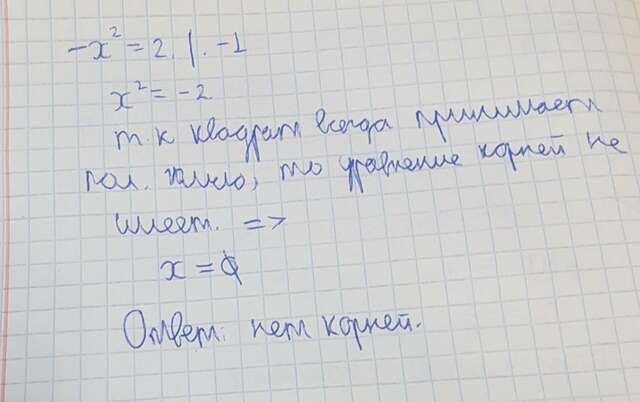 -x² = 2. |. -1
x² = -2
т.к квадрат всегда принимает
пол. число, то уравнение корней не
имеет. =>
x = ∅
Ответ: нет корней.